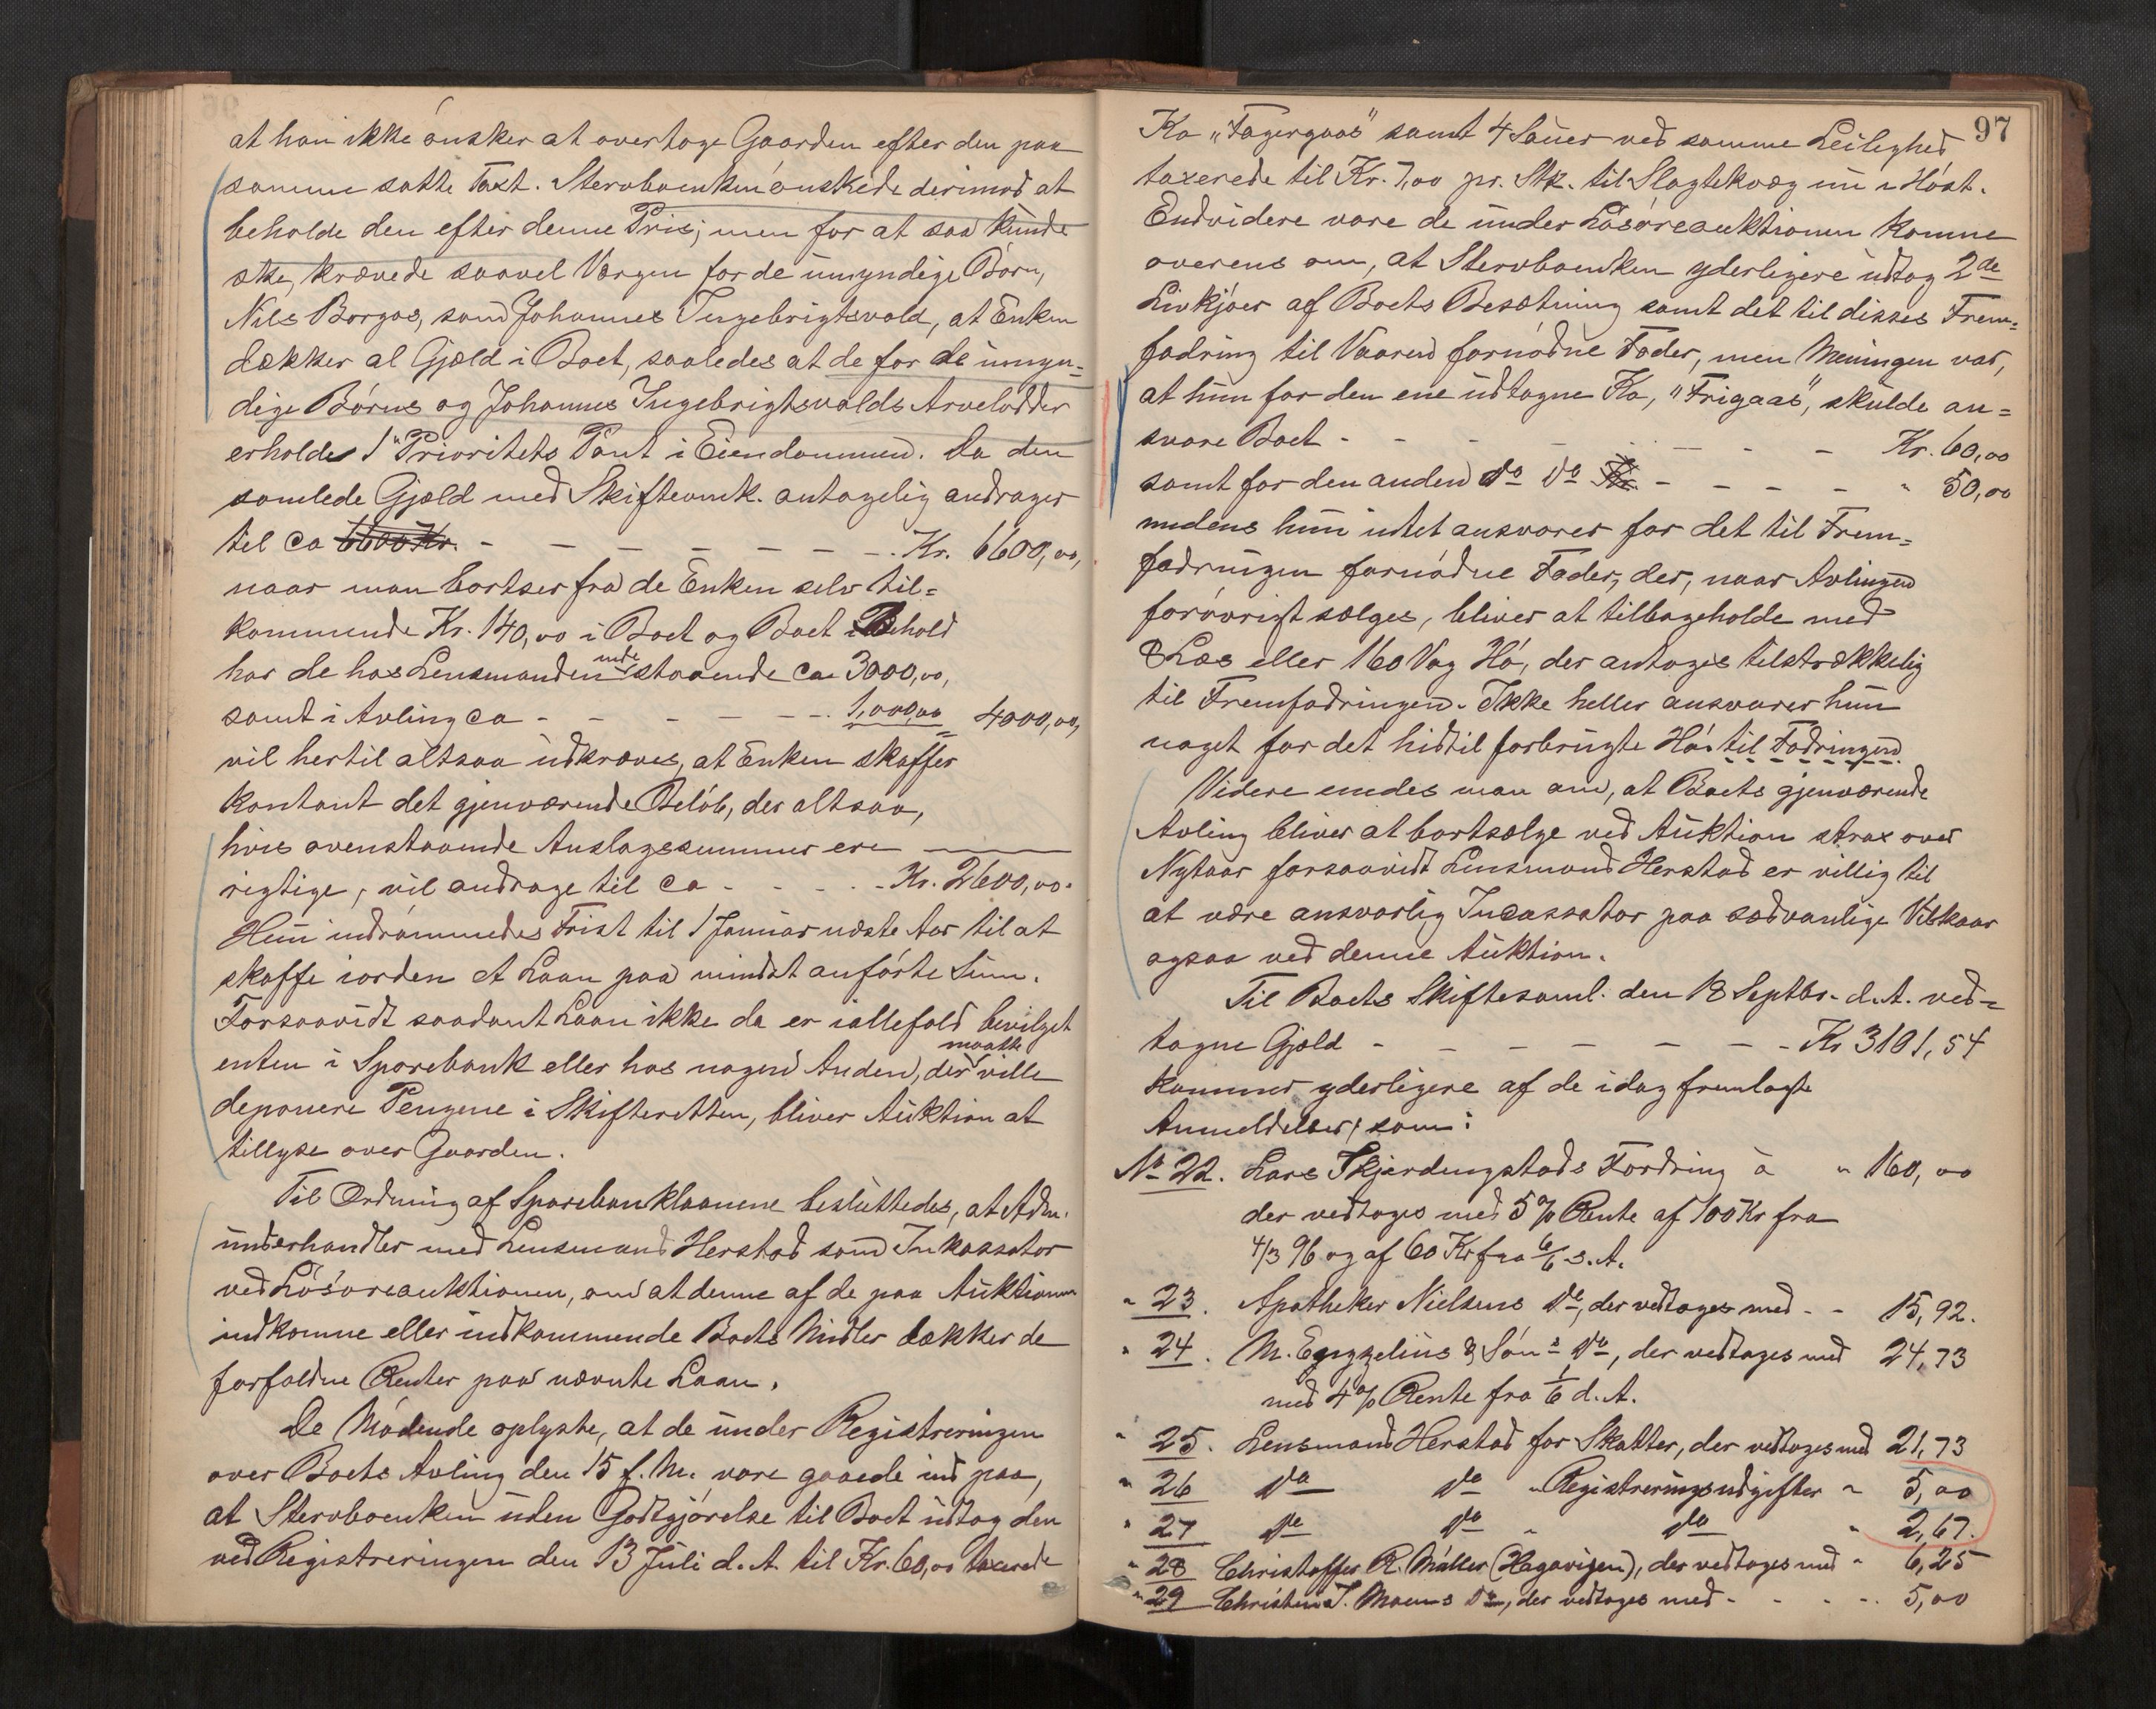 at han ikke ønsker at overtage Gaarden efter den paa
samme satte Taxt. Stervboenken ønskede derimod at
beholde den efter denne Pris; men for at saa kunde
ske, krævede saavel Vergen for de umyndige Børn,
Nils Borgos, som Johannes Ingebrigtsvold, at Enken
dækker al Gjæld i Boet, saaledes at de for de umyn=
dige Børns og Johannes Ingebrigtsvolds Arvelodder
erholder 1ste Prioritets Pant i Eiendommen. Da den
samlede Gjæld med Skifteomk. antagelig andrager
til ca 6600 Kr. - - - - - - - - Kr. 6600,00,
naar man bortser fra de Enken selv til=
kommende Kr. 140,00 i Boet og Boet i Behold
har de hos Lensmanden inde staaende ca 3000,00,
samt i Avling ca - - - - - - 1,000,00 4000,00,
vil hertil altsaa udkræves, at Enken skaffer
kontant det gjenværende Beløb, der altsaa,
hvis ovenstaaende Anslagssummer ere
rigtige, vil andrage til ca - - - - - Kr. 2600,00.
Hun indrømmedes Frist til 1 Januar næste Aar til at
skaffe iorden et Laan paa mindst anførte Sum.
Forsaavidt saadant Laan ikke da er iallefald bevilget
enten i Sparebank eller hos nogen Anden, der maatte ville
deponere Pengene i Skifteretten, bliver Auktion at
tillyse over Gaarden.
Til Ordning af Sparebanklaanene besluttedes, at Adm.
underhandler med Lensmand Herstad som Inkassator
ved Løsøreauktionen, om at denne af de paa Auktionen
indkomne eller indkommende Boets Midler dækker de
forfaldne Renter paa nævnte Laan.
De Mødende oplyste, at de under Registreringen
over Boets Avling den 15 f. M. vare gaaede ind paa,
at Stervboenken uden Godtgjørelse til Boet udtog den
ved Registreringen den 13 Juli d. A. til Kr. 60,00 taxerede
97
Ko "Fagergaas" samt 4 Sauer ved samme Leilighed
taxerede til Kr. 7,00 pr. Stk. til Slagtekvæg nu i Høst.
Endvidere vare de under Løsøreauktionen komne
overens om, at Stervboenken yderligere udtog 2de
Livkjøer af Boets Besætning samt det til disses Frem=
fodring til Vaaren fornødne Foder, men Meningen var,
at hun for den ene udtagne Ko, "Frigaas", skulde an=
svare Boet - - - - - - - - Kr. 60,00
samt for den anden do do Kr. - - - - - " 50,00
medens hun intet ansvarer for det til Frem=
fodringen fornødne Foder, der, naar Avlingen
forøvrigt sælges, bliver at tilbageholde med
8 Læs eller 160 Vog Hø, der antages tilstrækkelig
til Fremfodringen. Ikke heller ansvarer hun
noget for det hidtil forbrugte Hø til Fodringen.
Videre enedes man om, at Boets gjenværende
Avling bliver at bortsælge ved Auktion strax over
Nytaar forsaavidt Lensmand Herstad er villig til
at være ansvarlig Incassator paa sædvanlige Vilkaar
ogsaa ved denne Auktion.
Til Boets Skiftesaml. den 18 Septbr. d. A. ved=
tagne Gjæld - - - - - - - Kr 3101,54
kommer yderligere af de idag fremlagte
Anmeldelser, som:
No 22. Lars Skjerdengstads Fordring à " 160,00
der vedtages med 5 % Rente af 100 Kr fra
4/3 96 og af 60 Kr fra 6/6 s. A.
" 23. Apotheker Nielsens do, der vedtages med - - 15,92.
" 24. M. Engzelius & Søns do, der vedtages med 24,73
med 4 % Rente fra 1/6 d. A.
" 25. Lensmand Herstad for Skatter, der vedtages med 21,73
" 26 do do " Registreringsudgifter " 5,00
" 27 do do " do " 2,67.
" 28 Christoffer R. Møller (Hegavigen), der vedtages med " 6,25
" 29 Christen J. Moens do, der vedtages med - - - - 5,00